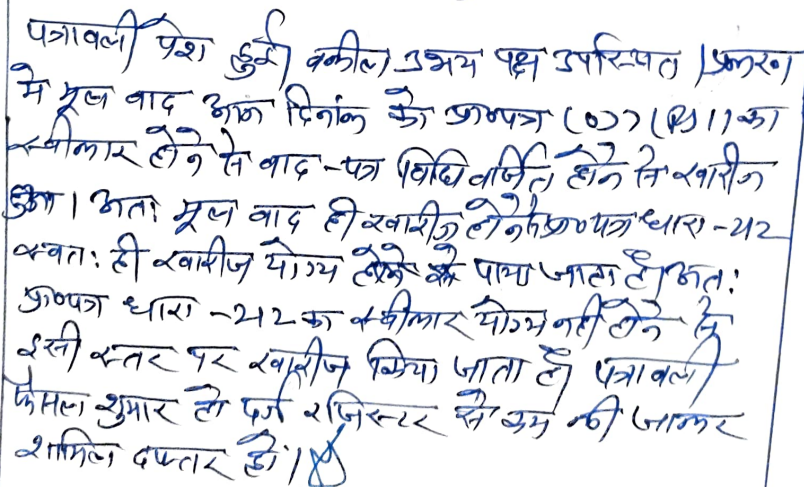 पत्रावली पेश हुई। वकील उभय पक्ष उपस्थित। प्रकरण
मे मूल वाद आज दिनांक को प्रा०पत्र (O 7 R 11) का
स्वीकार होने से वाद-पत्र विधि वर्जित होने से खारीज
हुआ। अतः मूल वाद ही खारीज होने से प्रा०पत्र धारा -212
स्वतः ही खारीज योग्य होने से पाया जाता है। अतः
प्रा०पत्र धारा -212 का स्वीकार योग्य नहीं होने से
इसी स्तर पर खारीज किया जाता है। पत्रावली
फैसल शुमार हो दर्ज रजिस्टर से कम की जाकर
शामिल दफ्तर हो।